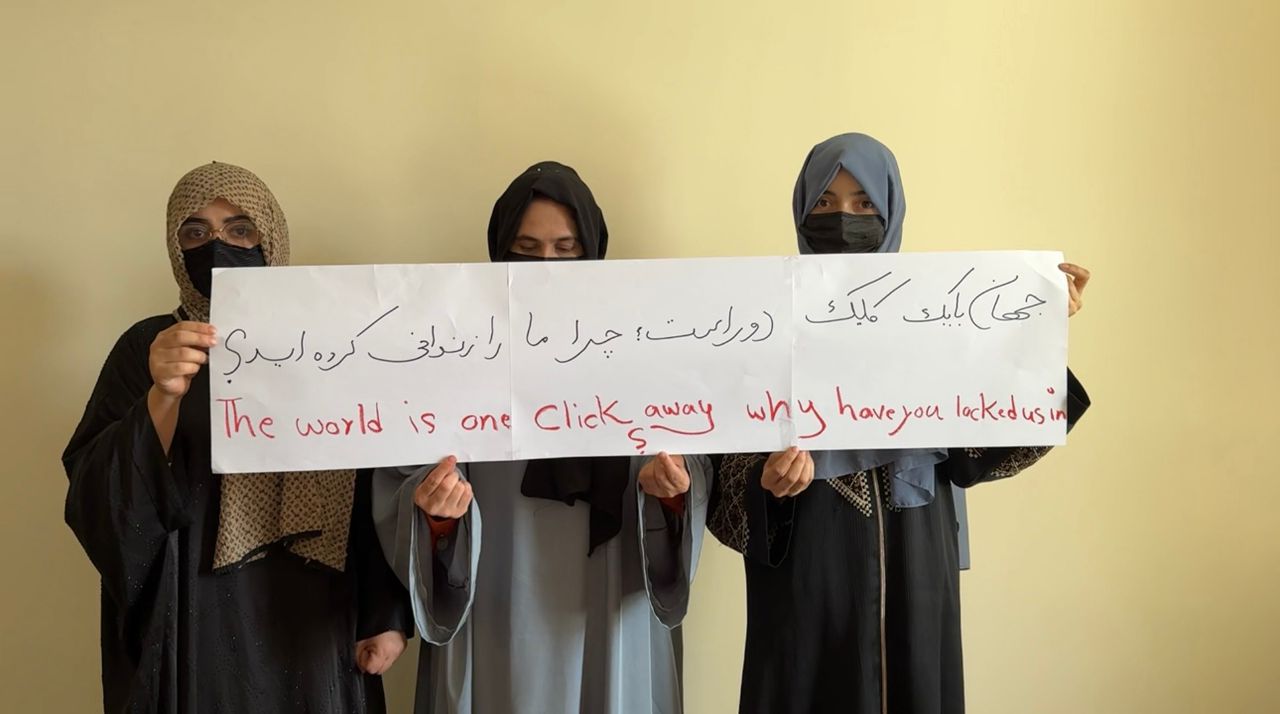 جهان بایک کلیک دور است؛ چرا ما را زندانی کرده اید؟
The world is one Click away why have you locked us in
؟